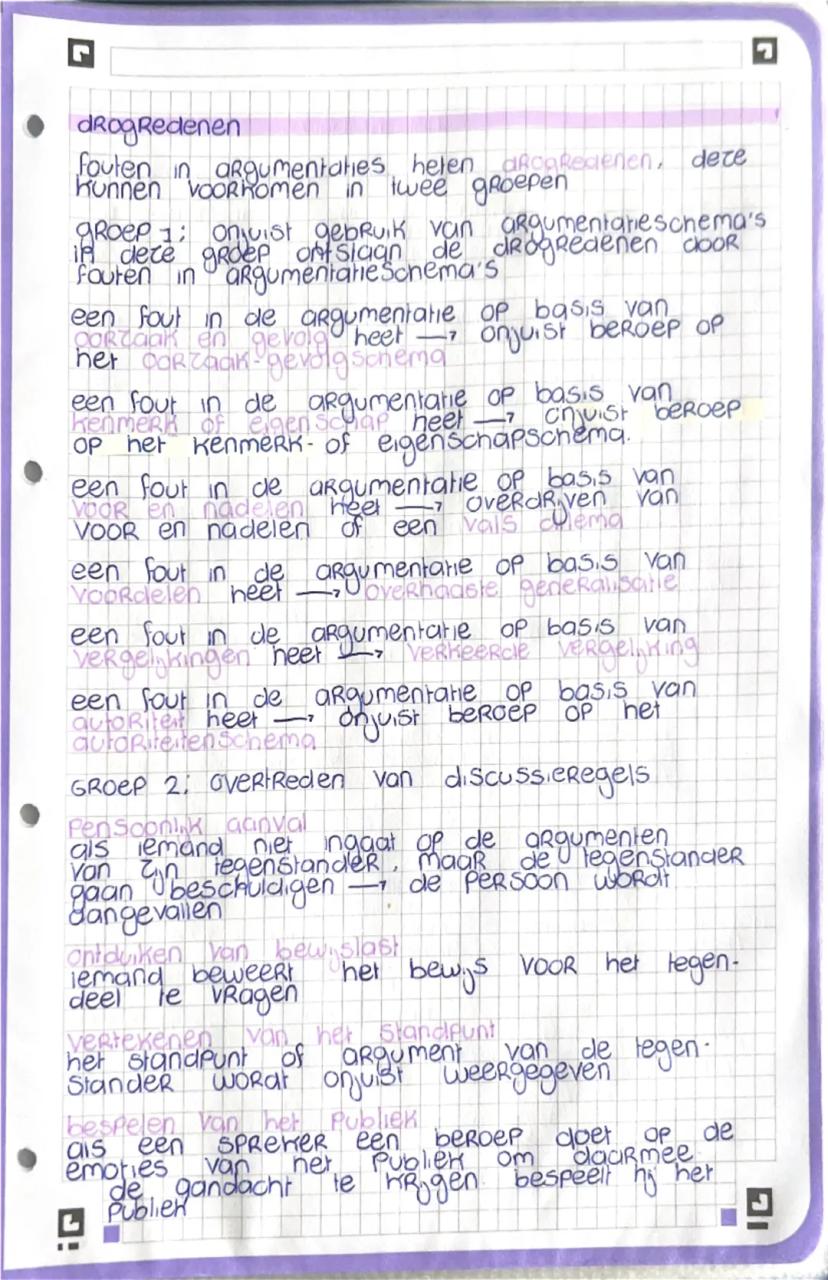 drogredenen
fouten in argumentaties heten drogredenen, deze
kunnen voorkomen in twee groepen
groep 1: onjuist gebruik van argumentatieschema's
in deze groep ontstaan de drogredenen door
fouten in argumentatieschema's
een fout in de argumentatie op basis van
oorzaak en gevolg heet → onjuist beroep op
het oorzaak-gevolgschema
een fout in de argumentatie op basis van
kenmerk of eigenschap heet → onjuist beroep
op het kenmerk- of eigenschapschema.
een fout in de argumentatie op basis van
voor en nadelen heet → overdrijven van
voor en nadelen of een vals dilema
een fout in de argumentatie op basis van
voordelen heet → overhaaste generalisatie
een fout in de argumentatie op basis van
vergelijkingen heet → verkeerde vergelijking
een fout in de argumentatie op basis van
autoriteit heet → onjuist beroep op het
autoriteitenschema
groep 2: overtreden van discussieregels
Persoonlijk aanval
als iemand niet ingaat op de argumenten
van zijn tegenstander, maar de tegenstander
gaan beschuldigen → de persoon wordt
aangevallen
ontduiken van bewijslast
iemand beweert het bewijs voor het tegen-
deel te vragen
vertekenen van het standpunt
het standpunt of argument van de tegen-
stander wordt onjuist weergegeven
bespelen van het publiek
als een spreker een beroep doet op de
emoties van het publiek om daarmee
de aandacht te krijgen bespeelt hij het
publiek